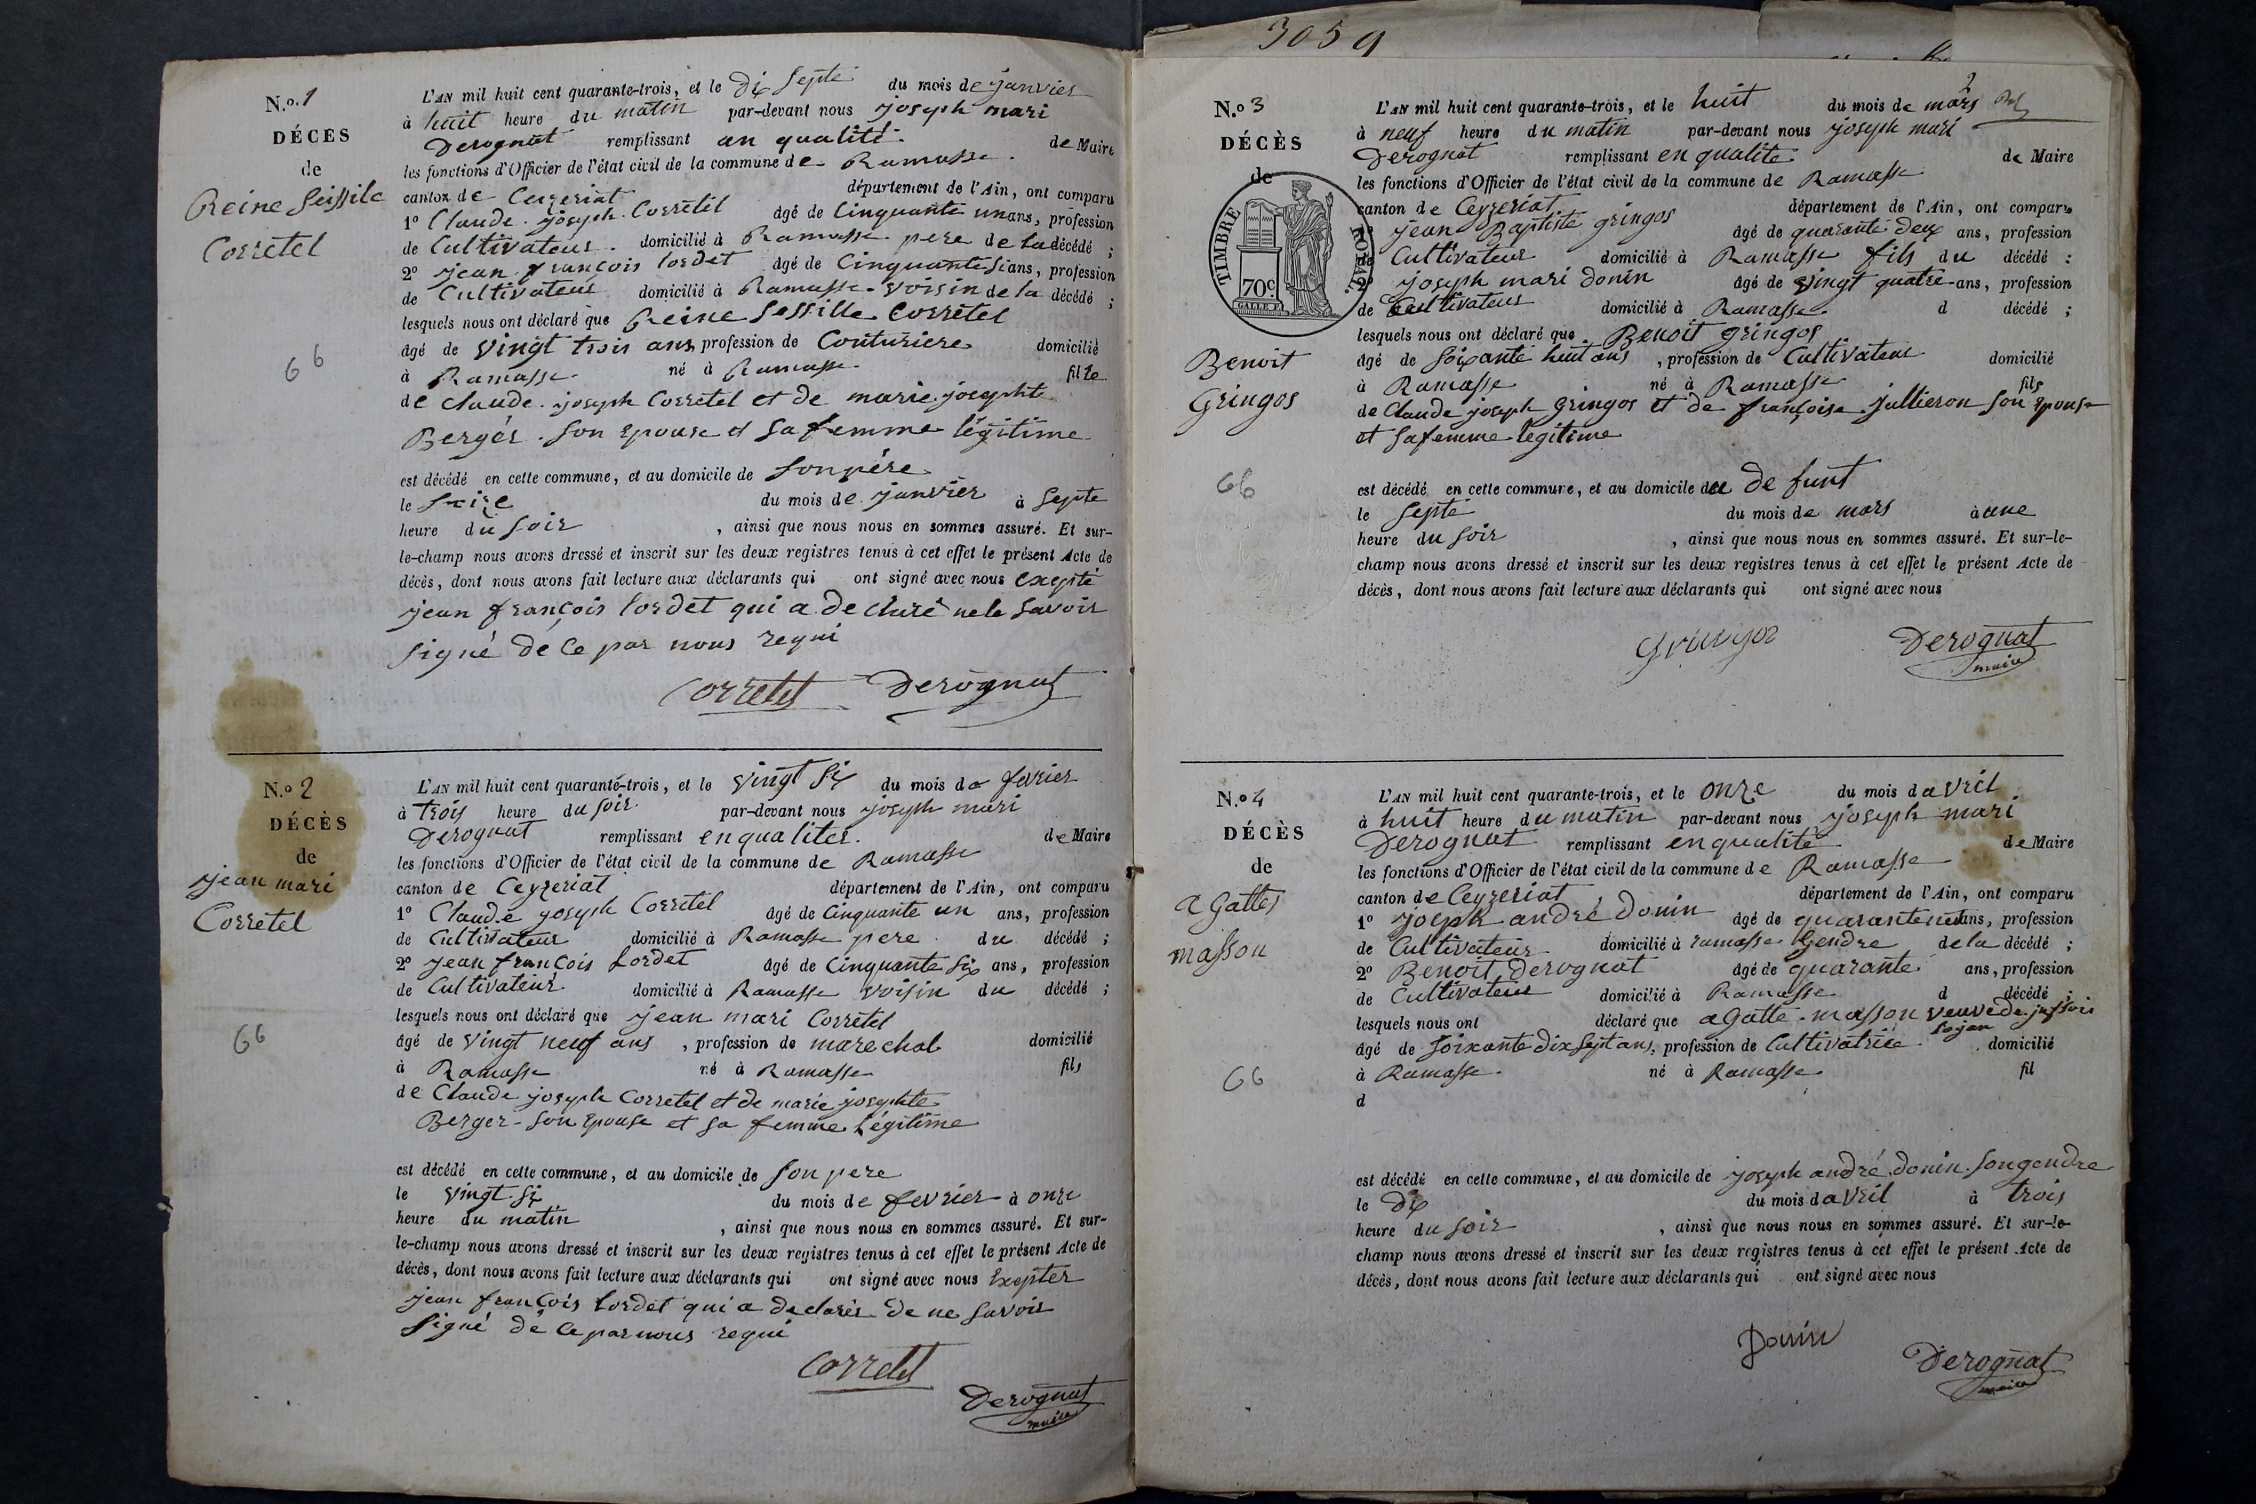 N.o 1
DÉCÈS
de
Reine Seissile
Corretel
66
L'AN mil huit cent quarante-trois, et le dix septe du mois de janvier
à huit heure du matin par-devant nous joseph mari
Derognat remplissant an qualité de Maire
les fonctions d'Officier de l'état civil de la commune de Ramasse
canton de Ceyzeriat département de l'Ain, ont comparu
1º Claude joseph Corretel âgé de Cinquante un ans, profession
de Cultivateur domicilié à Ramasse pere de la décédé ;
2º jean françois Lordet âgé de Cinquante si ans, profession
de Cultivateur domicilié à Ramasse voisin de la décédé ;
lesquels nous ont déclaré que Reine Sessille Corretel
âgé de vingt trois ans profession de Couturiere domicilié
à Ramasse né à Ramasse fille
de Claude joseph Corretel et de marie josephte
Berger son epouse et sa femme légitime
est décédé en cette commune, et au domicile de son père
le seize du mois de janvier à septe
heure du soir , ainsi que nous nous en sommes assuré. Et sur-
le-champ nous avons dressé et inscrit sur les deux registres tenus à cet effet le présent Acte de
décès, dont nous avons fait lecture aux déclarants qui ont signé avec nous exepté
jean françois Lordet qui a de claré ne le savoir
signé dé ce par nous requi
Corretel Derognat
N.o 2
DÉCÈS
de
jean mari
Corretel
66
L'AN mil huit cent quarante-trois, et le vingt six du mois de fevrier
à trois heure du soir par-devant nous joseph mari
Derognat remplissant en qualiter de Maire
les fonctions d'Officier de l'état civil de la commune de Ramasse
canton de Ceyzeriat département de l'Ain, ont comparu
1º Claude joseph Corretel âgé de Cinquante un ans, profession
de Cultivateur domicilié à Ramasse pere du décédé ;
2º jean françois Lordet âgé de Cinquante six ans, profession
de Cultivateur domicilié à Ramasse voisin du décédé ;
lesquels nous ont déclaré que jean mari Corretel
âgé de vingt neuf ans , profession de marechal domicilié
à Ramasse né à Ramasse fils
de Claude joseph Corretel et de marie josephte
Berger son epouse et sa femme légitime
est décédé en cette commune, et au domicile de son pere
le vingt six du mois de fevrier à onze
heure du matin , ainsi que nous nous en sommes assuré. Et sur-
le-champ nous avons dressé et inscrit sur les deux registres tenus à cet effet le présent Acte de
décès, dont nous avons fait lecture aux déclarants qui ont signé avec nous Exepter
jean françois Lordet qui a declarér de ne savoir
signé dé ce par nous requi
Corretel
Derognat
maire
3059
2
N.o 3
DÉCÈS
de
TIMBRE ROYAL
70c
Benoit
Gringos
66
L'AN mil huit cent quarante-trois, et le huit du mois de mars
à neuf heure du matin par-devant nous joseph mari
Derognat remplissant en qualité de Maire
les fonctions d'Officier de l'état civil de la commune de Ramasse
canton de Ceyzeriat département de l'Ain, ont comparu
jean Baptiste gringos âgé de quarante deux ans, profession
de Cultivateur domicilié à Ramasse fils du décédé :
2º joseph mari donin âgé de vingt quatre ans, profession
de Cultivateur domicilié à Ramasse d décédé ;
lesquels nous ont déclaré que Benoit gringos
âgé de soixante huit ans , profession de Cultivateur domicilié
à Ramasse né à Ramasse fils
de Claude joseph gringos et de françoise jullieron son epouse
et sa femme legitime
est décédé en cette commune, et au domicile du de funt
le septe du mois de mars à une
heure du soir , ainsi que nous nous en sommes assuré. Et sur-le-
champ nous avons dressé et inscrit sur les deux registres tenus à cet effet le présent Acte de
décès, dont nous avons fait lecture aux déclarants qui ont signé avec nous
Gringos Derognat
maire
N.o 4
DÉCÈS
de
agatte
masson
66
L'AN mil huit cent quarante-trois, et le onze du mois d avril
à huit heure du matin par-devant nous joseph mari
Derognat remplissant en qualité de Maire
les fonctions d'Officier de l'état civil de la commune de Ramasse
canton de Ceyzeriat département de l'Ain, ont comparu
1º joseph andré donin âgé de quarante neuf ans, profession
de Cultivateur domicilié à ramasse gendre de la décédé ;
2º Benoit Derognat âgé de quarante ans, profession
de Cultivateur domicilié à Ramasse d décédé ;
lesquels nous ont déclaré que agatte masson veuve de
âgé de soixante dix sept ans, profession de Cultivatrice domicilié
à Ramasse né à Ramasse fil
d
est décédé en cette commune, et au domicile de joseph andré donin son gendre
le dix du mois d avril à trois
heure du soir , ainsi que nous nous en sommes assuré. Et sur-le-
champ nous avons dressé et inscrit sur les deux registres tenus à cet effet le présent Acte de
décès, dont nous avons fait lecture aux déclarants qui ont signé avec nous
Donin
Derognat
maire